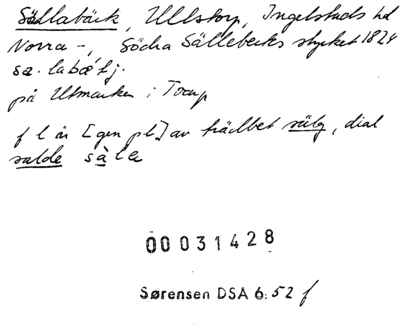 Sällabäck, Ullstorp, Ingelstads hd
Norra -, Södra Sällebecks stycket 1824
sæ.labæ´tj.
på Utmarken i Tosup
f l är [gen pl.] av trädbet sälg, dial
salde såle
00031428
Sørensen DSA 6:52 f